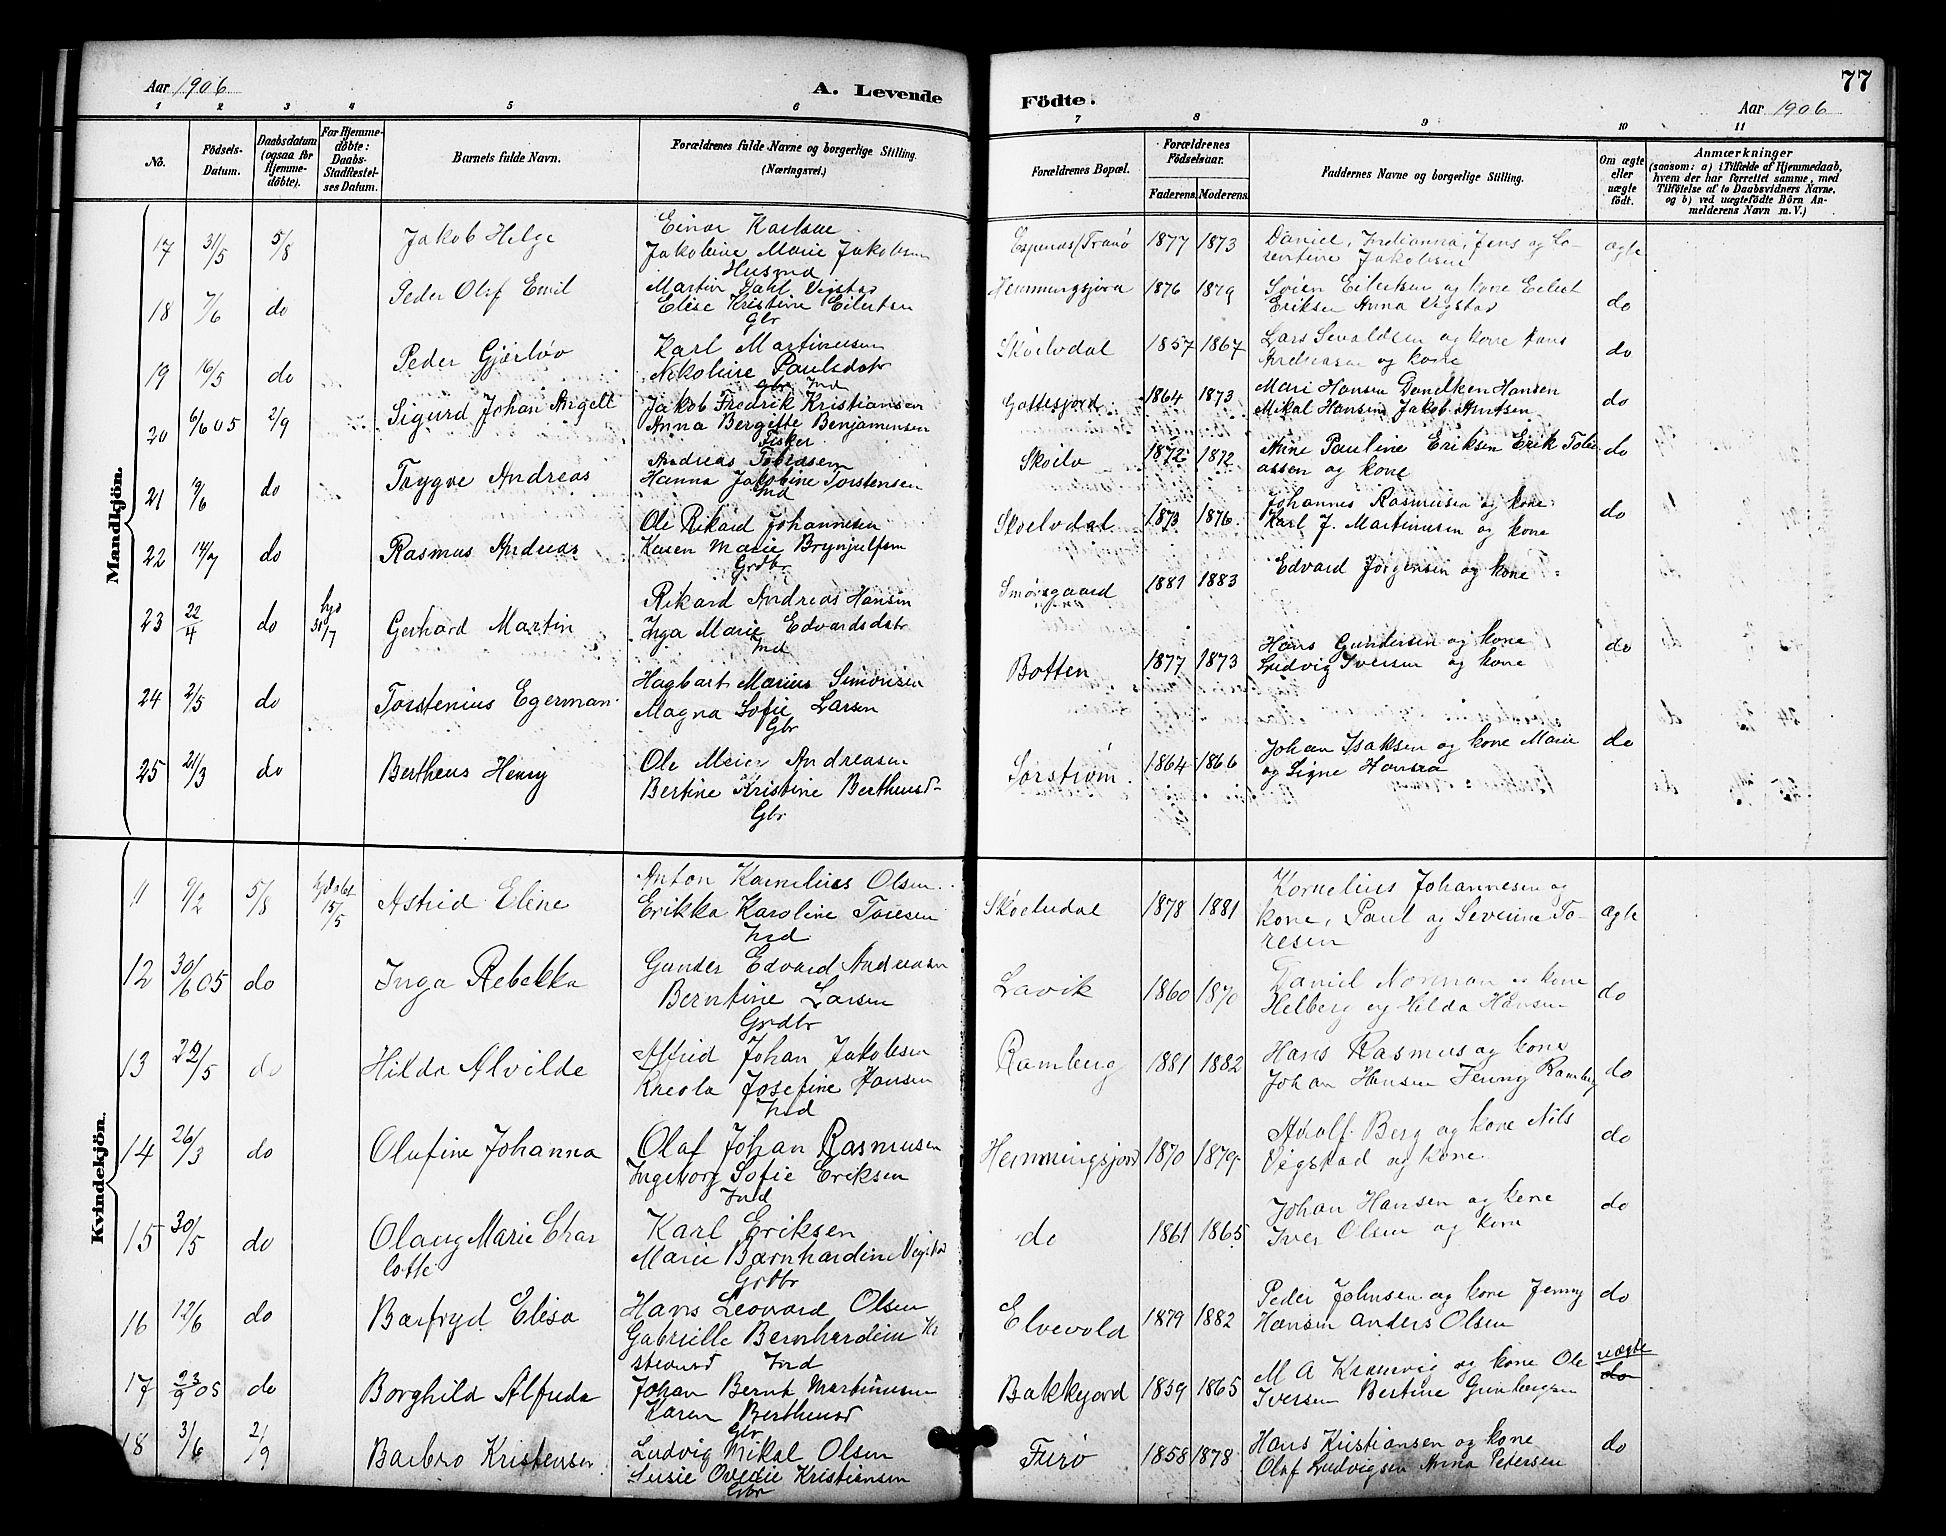 Aar 1906
A. Levende
Födte.
77
Aar 1906
1 2 3 4 5 6 7 8 9 10 11
No.
Födsels-Datum.
Daabsdatum (ogsaa for Hjemme-döbte).
For Hjemme-döbte: Daabs-Stadfæstel-ses Datum.
Barnets fulde Navn.
Forældrenes fulde Navne og borgerlige Stilling. (Næringsvei.)
Forældrenes Bopæl.
Forældrenes Födselsaar.
Faderens. Moderens.
Faddernes Navne og borgerlige Stilling.
Om ægte eller uægte födt.
Anmærkninger
(saasom: a) i Tilfælde af Hjemmedaab,
hvem der har forrettet samme, med
Tilföielse af to Daabsvidners Navne,
og b) ved uægtefödte Börn An-
melderens Navn m. V.)
Mandkjön.
17 31/5 5/8 Jakob Helge
Einar Karlsen
Jakobine Marie Jakobsen
Husmd
Espenæs/Tranø 1877 1873
Daniel, Indianna, Jens og La-
rentine Jakobsen
ægte
18 7/6 do Peder Olaf Emil
Martin Dahl Vigstad
Elise Kristine Eilertsen
Gbr
Hemmingsjora 1876 1879
Søren Eilertsen og kone Eilert
Eriksen Anna Vigstad
do
19 16/5 do Peder Gjærløv
Karl Martinusen
Nikoline Paulsdatr
Gbr Ind
Skoelvdal 1857 1867
Lars Sevaldsen og kone Hans
Andreasen og kone
do
20 6/6 05 2/9 Sigurd Johan Angell
Jakob Fredrik Kristiansen
Anna Bergette Benjaminsen
Fisker
Gottesjord 1864 1873
Mari Hansen Hansen
Mikal Hansen Jakob Arntsen
do
21 19/6 do Trygve Andreas
Andreas Tobiasen
Hanna Jakobine Torstensen
Ind
Skoelv 1872 1872
Anne Pauline Eriksen Erik Tobi
assen og kone
do
22 14/7 do Rasmus Andreas
Ole Rikard Johannesen
Karen Marie Brynjulfsen
Grdbr
Skoelvdal 1873 1876
Johannes Rasmusen og kone
Karl J. Martinusen og kone
do
23 22/4 do 31/7 Gerhard Martin
Rikard Andreas Hansen
Inga Marie Edvardsdatr
Ind
Smørsgaard 1881 1883
Edvard Jørgensen og kone
do
24 2/5 do Torstenius Egerman
Hagbart Marius Simonsen
Magna Sofie Larsen
Gbr
Botten 1877 1873
Hans Gundersen og kone
Ludvig Iversen og kone
25 21/3 do Bertheus Henry
Ole Meier Andreasen
Bertine Kristine Bertheusd-
Gbr
Sørstrøm 1864 1866
Johan Isaksen og kone Marie
og Signe Hansen
do
Kvindekjön.
11 9/2 5/8 15/5 Astrid Eline
Anton Kornelius Olsen
Erikka Karoline Toresen
Ind
Skoelvdal 1878 1881
Kornelius Johannesen og
kone, Paul og Severine To-
resen
ægte
12 30/6 05 do Inga Rebekka
Gunder Edvard Andreasen
Berntine Larsen
Grdbr
Lavik 1860 1870
Daniel Norman og kone
Helberg og Hilda Hansen
do
13 22/5 do Hilda Alvilde
Alfrid Johan Jakobsen
Kreola Josefine Hansen
Ind
Ramberg 1881 1882
Hans Rasmus og kone
Johan Hansen Jenny Ramberg
do
14 26/3 do Olufine Johanna
Olaf Johan Rasmusen
Ingeborg Sofie Eriksen
Ind
Hemmingsjord 1870 1879
Adolf Berg og kone Nils
Vigstad og kone
do
15 30/5 do Olaug Marie Char
lotte
Karl Eriksen
Marie Barnhardine Vigstad
Grdbr
do 1861 1865
Johan Hansen og kone
Iver Olsen og kone
do
16 12/6 do Barfryd Elisa
Hans Leonard Olsen
Gabrielle Bernhardein Kr
stensd Ind
Elvevold 1879 1882
Peder Johnsen og kone Jenny
Hansen Anders Olsen
do
17 23/9 05 do Borghild Alfrida
Johan Bernt Martinusen
Karen Bertheusd
Gbr
Bakkejord 1859 1865
M A Kræmvig og kone Ole
Iversen Bertine Grønbergsen
uægte
do
18 3/6 2/9 Barbro Kristensen
Ludvig Mikal Olsen
Susie Ovedie Kristiansen
Grbr
Furø 1858 1878
Hans Kristiansen og kone
Olaf Ludvigsen Anna Pedersen
do